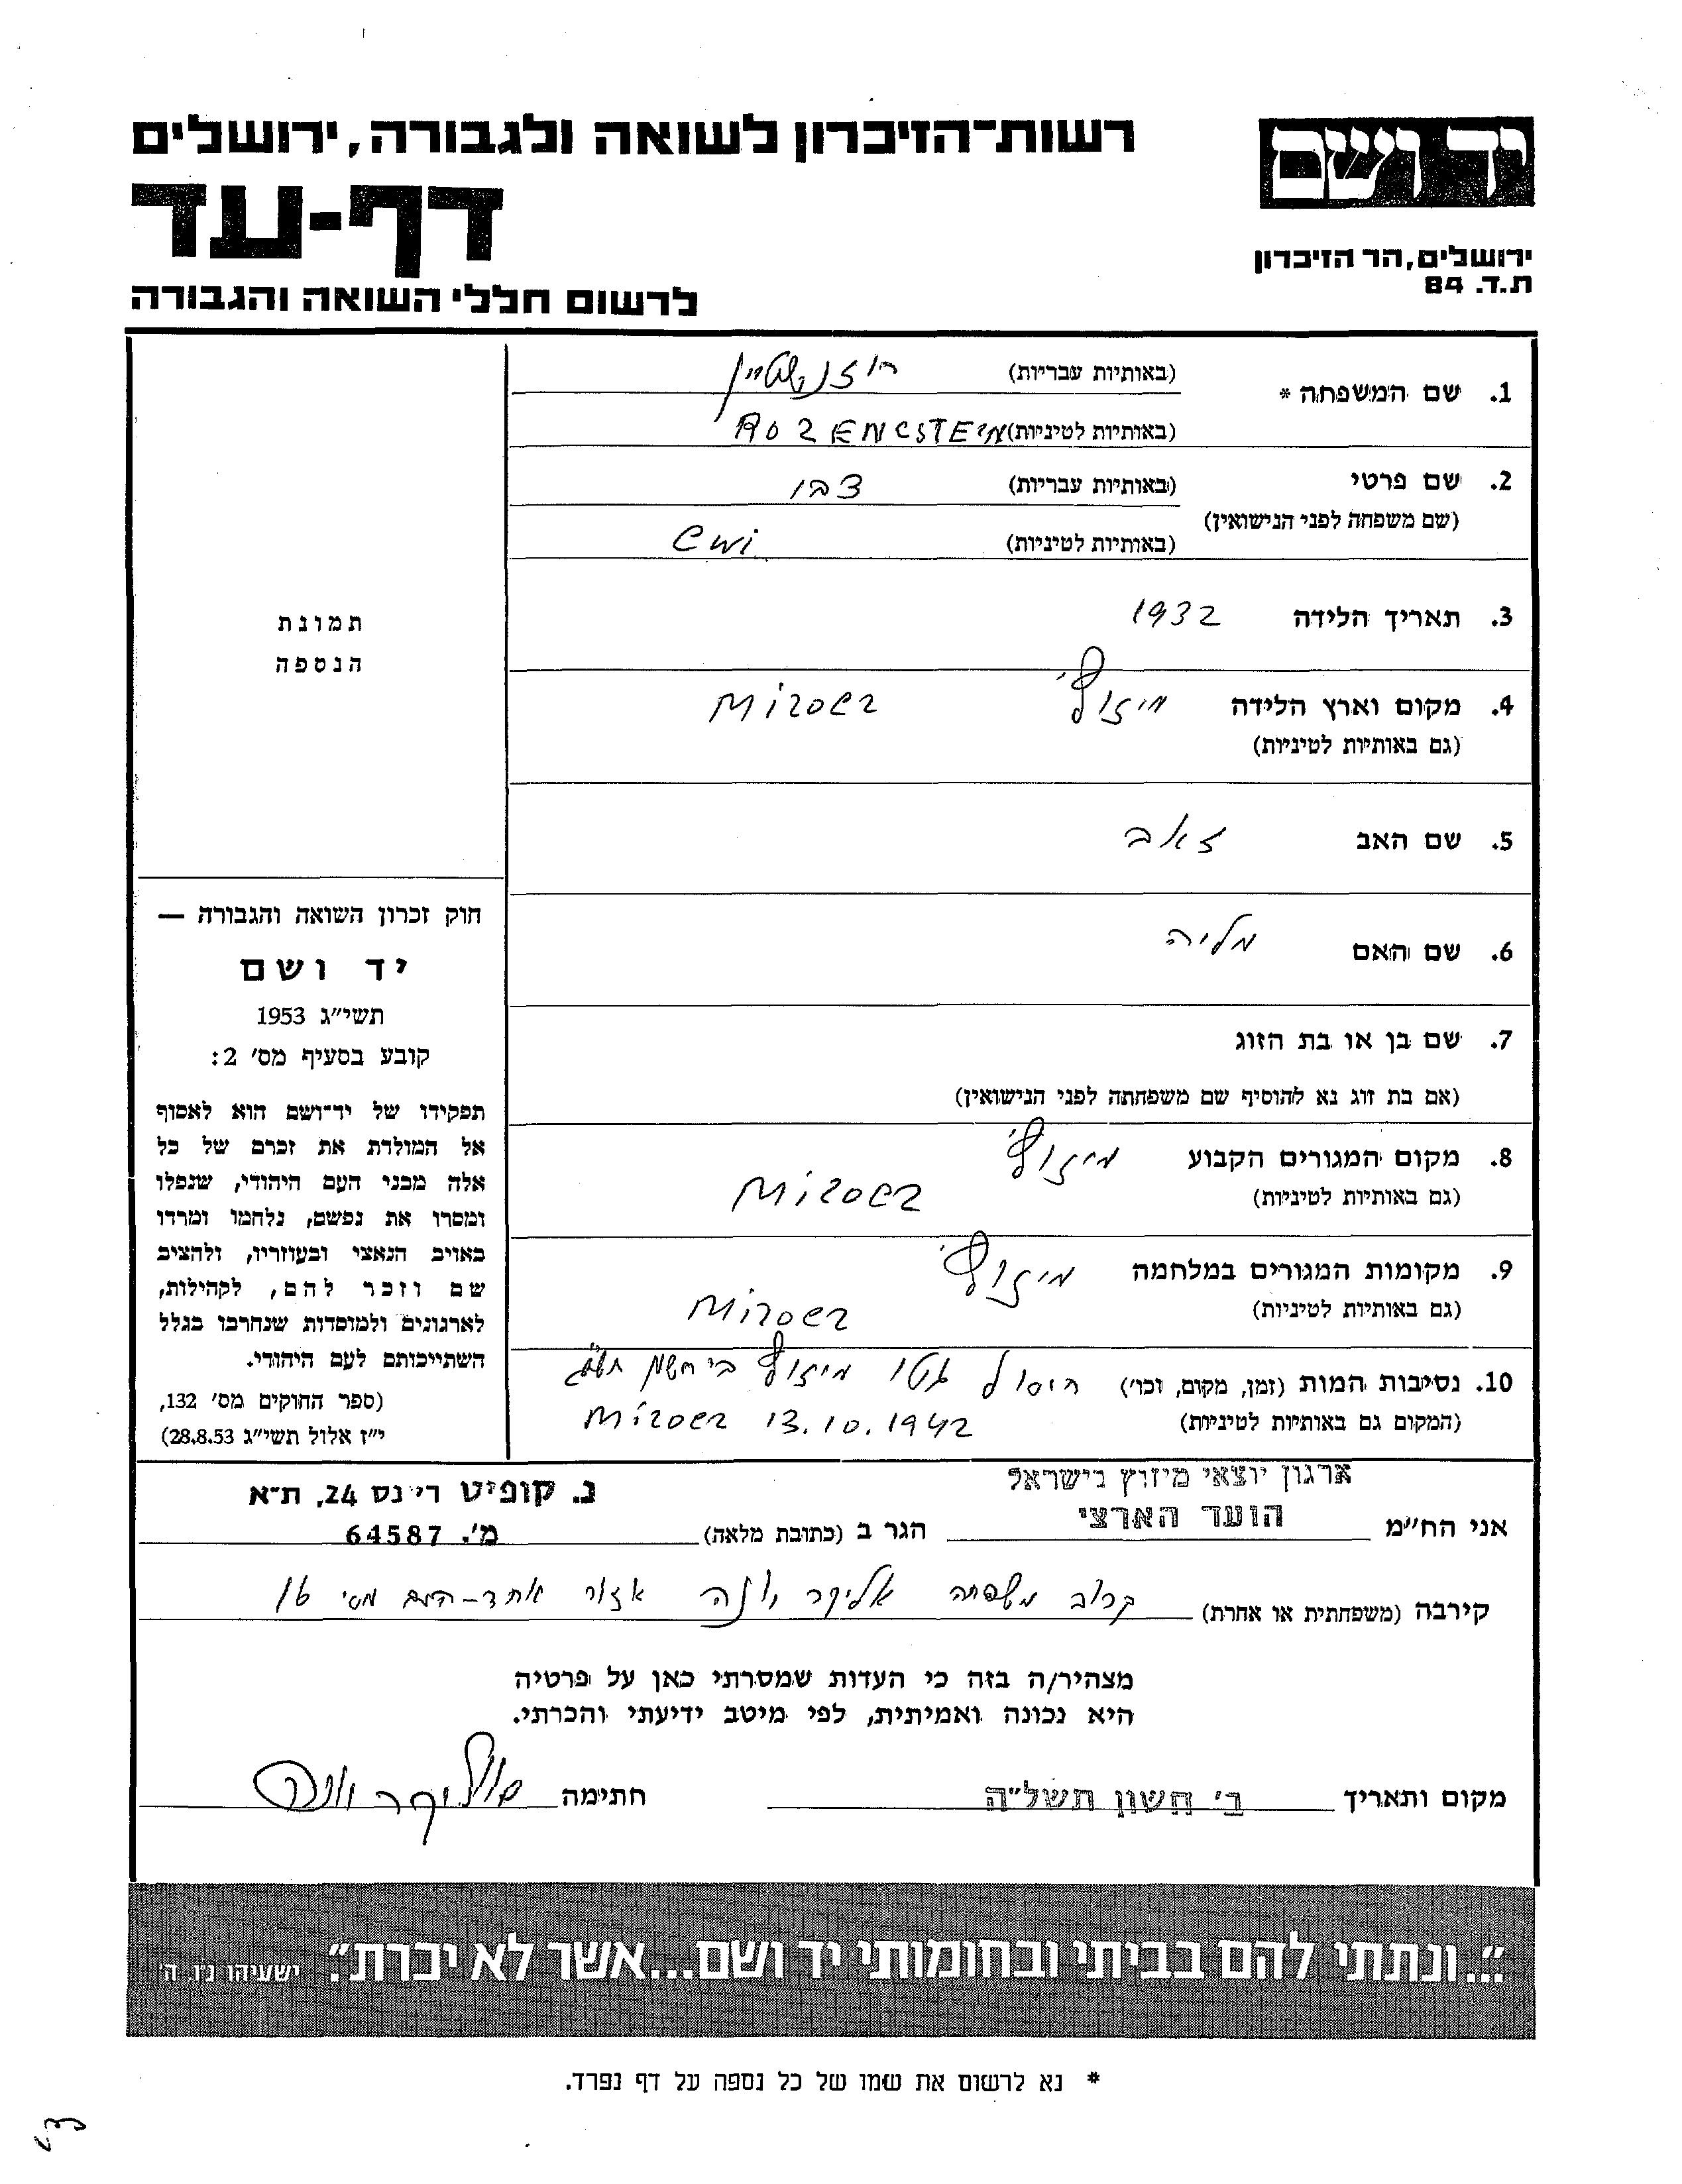 יד ושם
רשות־הזיכרון לשואה ולגבורה, ירושלים
דף-עד
ירושלים, הר הזיכרון
ת.ד. 84
לרשום חללי השואה והגבורה
1. שם המשפחה * (באותיות עבריות) רוזנשטיין
(באותיות לטיניות) ROZENCSTEIN
2. שם פרטי (באותיות עבריות) צבי
(שם משפחה לפני הנישואין)
(באותיות לטיניות) Cwi
3. תאריך הלידה 1932
4. מקום וארץ הלידה מיזוץ' Mizocz
(גם באותיות לטיניות)
5. שם האב זאב
6. שם האם מליה
7. שם בן או בת הזוג
(אם בת זוג נא להוסיף שם משפחתה לפני הנישואין)
8. מקום המגורים הקבוע מיזוץ'
(גם באותיות לטיניות) Mizocz
9. מקומות המגורים במלחמה מיזוץ'
(גם באותיות לטיניות) Mizocz
10. נסיבות המות (זמן, מקום, וכו') חיסול גטו מיזוץ' ב' חשון תש"ג
(המקום גם באותיות לטיניות) Mizocz 13.10.1942
תמונת
הנספה
חוק זכרון השואה והגבורה —
יד ושם
תשי״ג 1953
קובע בסעיף מס׳ 2:
תפקידו של יד־ושם הוא לאסוף
אל המולדת את זכרם של כל
אלה מבני העם היהודי, שנפלו
ומסרו את נפשם, נלחמו ומרדו
באויב הנאצי ובעוזריו, ולהציב
שם וזכר להם, לקהילות,
לארגונים ולמוסדות שנחרבו בגלל
השתייכותם לעם היהודי.
(ספר החוקים מס׳ 132,
י״ז אלול תשי״ג 28.8.53)
ארגון יוצאי מיזוץ בישראל
נ. קופיט רי׳נס 24, ת״א
אני הח״מ הועד הארצי הגר ב (כתובת מלאה) מ׳. 64587
קירבה (משפחתית או אחרת) קרוב משפחה אליקר יונה אזור אחד-העם מס' 16
מצהיר/ה בזה כי העדות שמסרתי כאן על פרטיה
היא נכונה ואמיתית, לפי מיטב ידיעתי והכרתי.
מקום ותאריך ב׳ חשון תשל״ה חתימה אליקר יונה
״...ונתתי להם בביתי ובחומותי יד ושם...אשר לא יכרת״. ישעיהו נ״ו ה׳
* נא לרשום את שמו של כל נספה על דף נפרד.